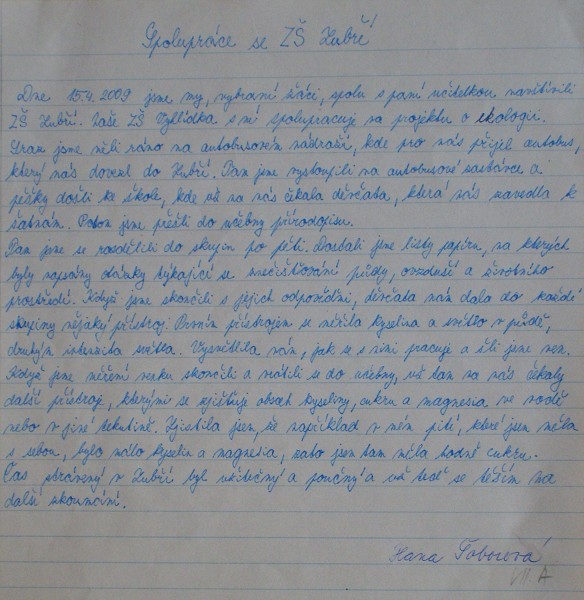 Spolupráce se ZŠ Zubří
Dne 15.4.2009 jsme my, vybraní žáci, spolu s paní učitelkou navštívili
ZŠ Zubří. Naše ZŠ Vyhlídka s ní spolupracuje na projektu o ekologii.
Sraz jsme měli ráno na autobusovém nádraží, kde pro nás přijel autobus,
který nás dovezl do Zubří. Tam jsme vystoupili na autobusové zastávce a
pěšky došli ke škole, kde už na nás čekala děvčata, která nás zavedla k
šatnám. Potom jsme přešli do učebny přírodopisu.
Tam jsme se rozdělili do skupin po pěti. Dostali jsme listy papíru, na kterých
byly napsány otázky týkající se znečišťování půdy, ovzduší a životního
prostředí. Když jsme skončili s jejich odpověďmi, děvčata nám dala do každé
skupiny nějaký přístroj. Prvním přístrojem se měřila kyselina a světlo v půdě,
druhým intenzita světla. Vysvětlila nám, jak se s nimi pracuje a šli jsme ven.
Když jsme měření venku skončili a vrátili se do učebny, už tam na nás čekaly
další přístroje, kterými se zjišťuje obsah kyseliny, cukru a magnesia ve vodě
nebo v jiné tekutině. Zjistila jsem, že například v mém pití, které jsem měla
s sebou, bylo málo kyselin a magnesia, zato jsem tam měla hodně cukru.
Čas strávený v Zubří byl užitečný a poučný a už teď se těším na
další zkoumání.
Hana
VII A